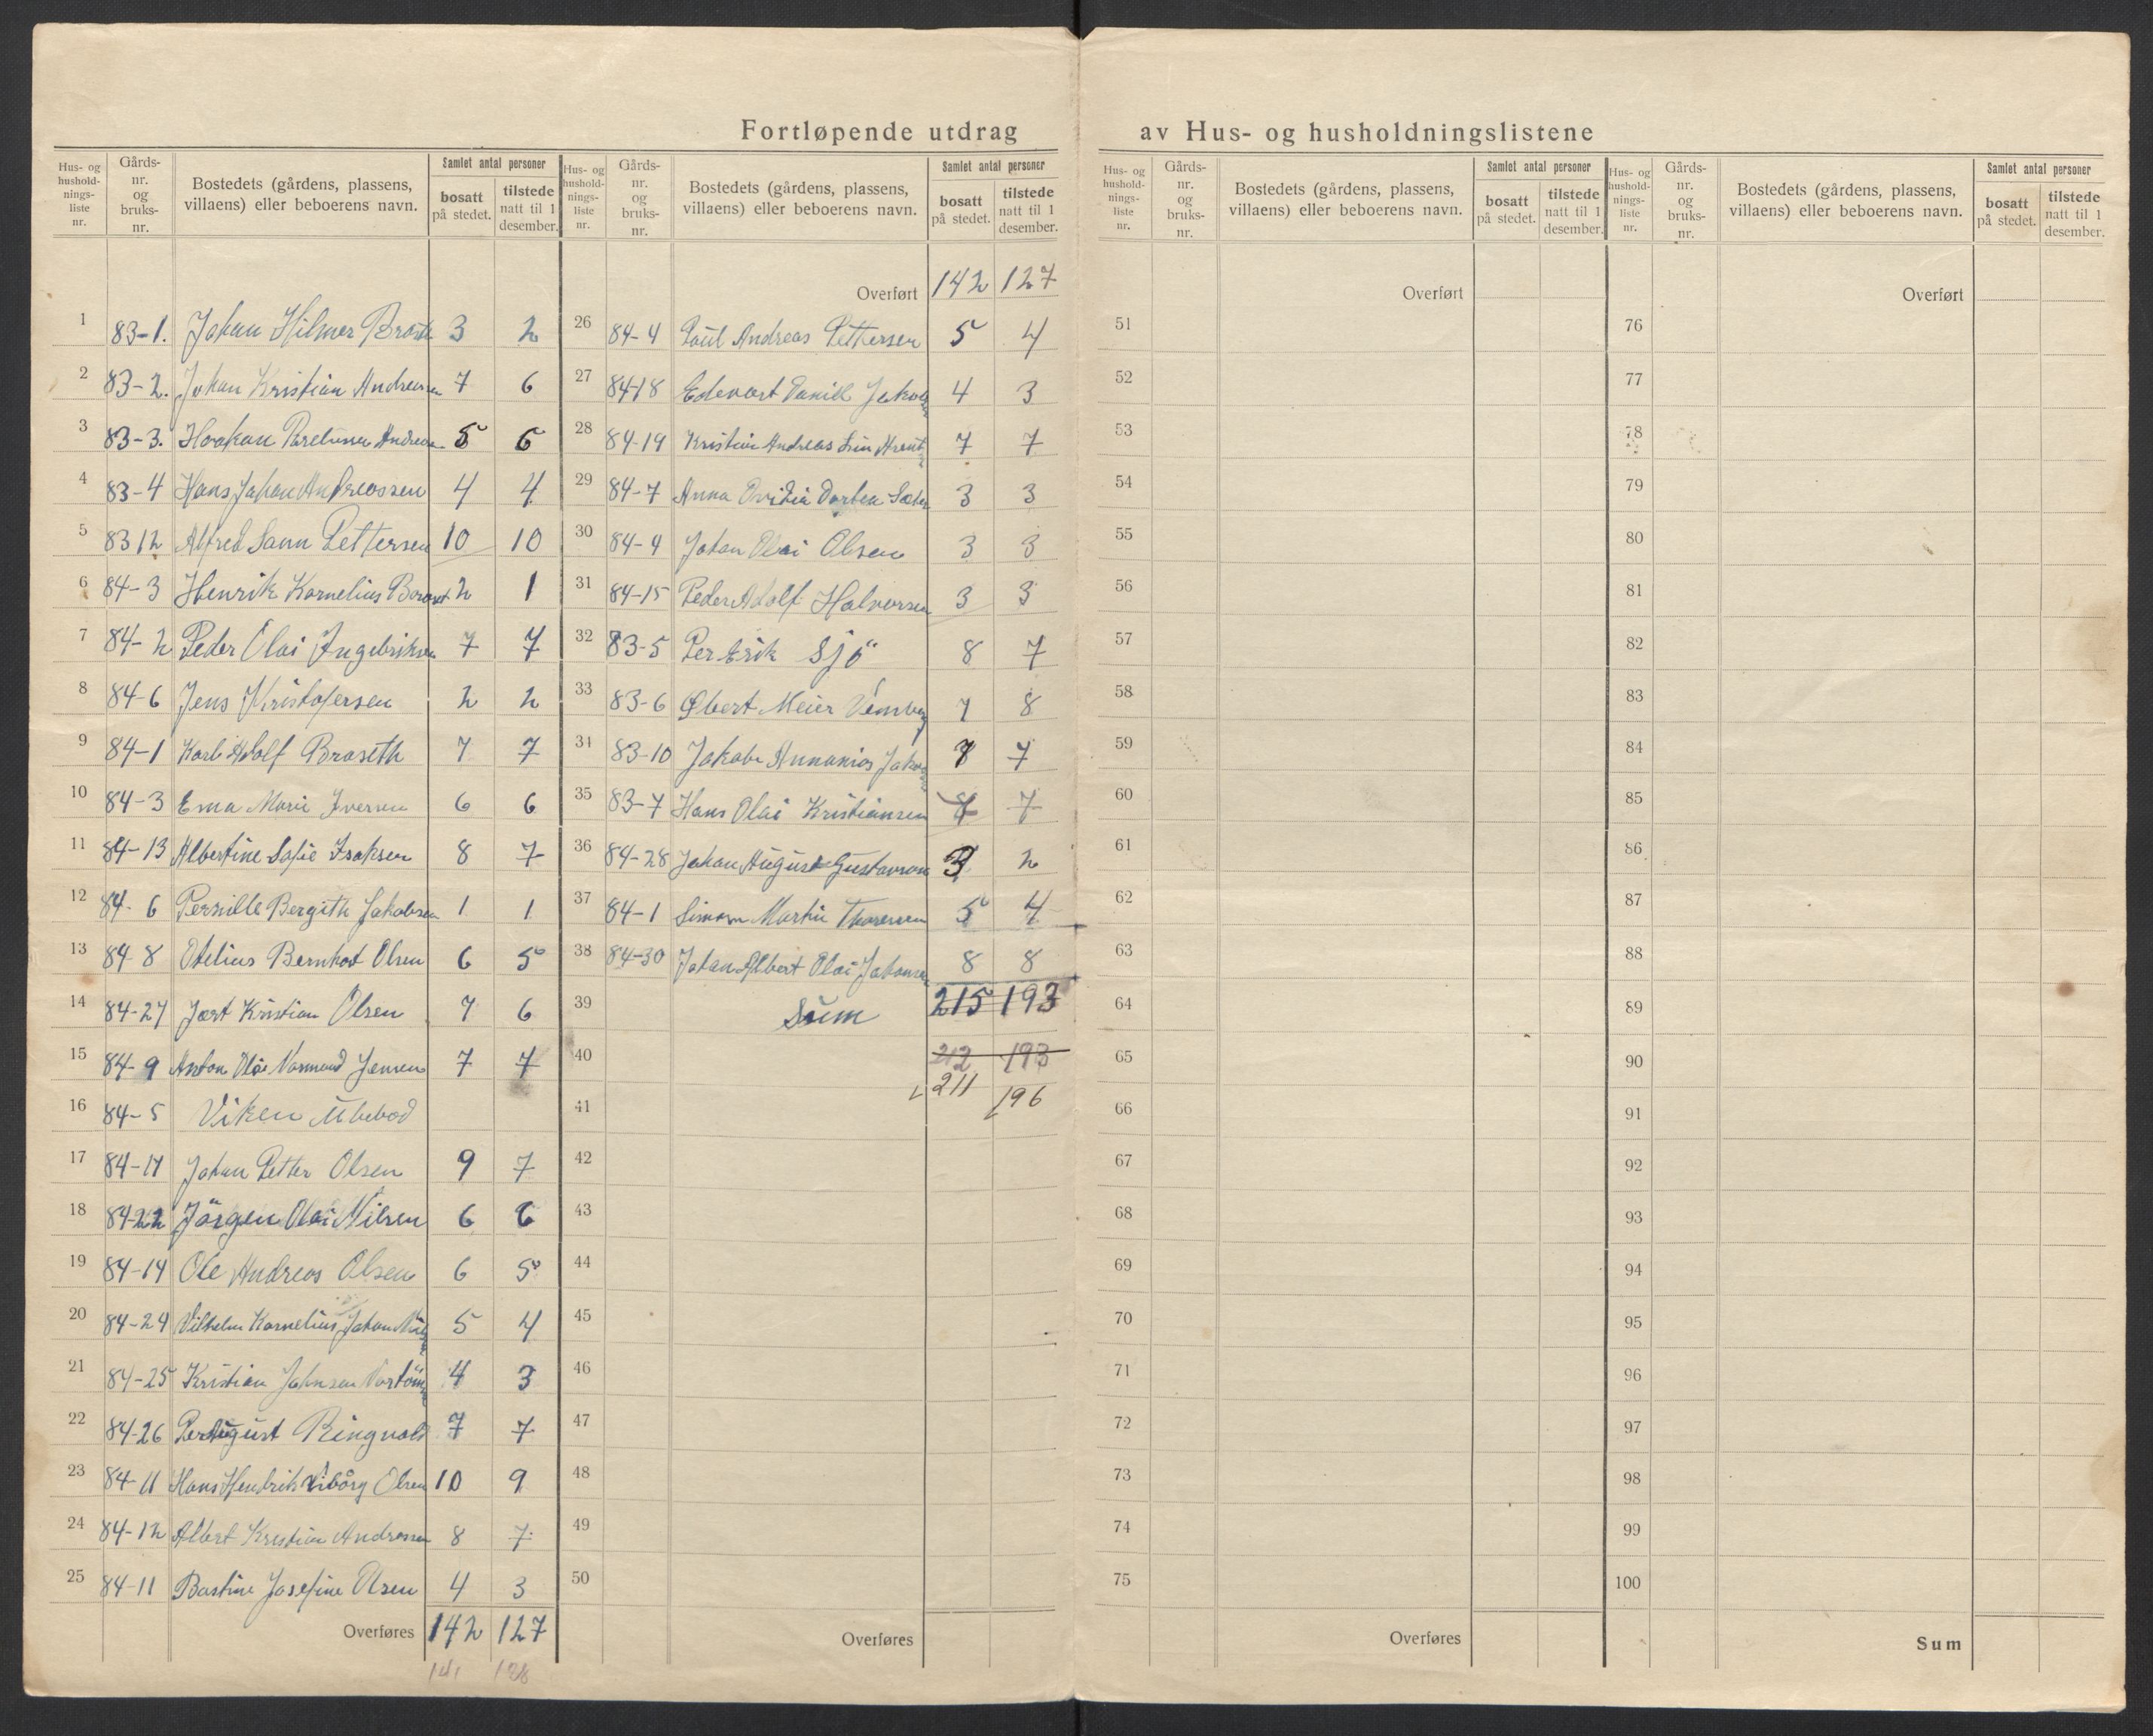 Fortløpende utdrag av Hus- og husholdningslistene
Hus- og hushold-nings-liste nr. Gårds-nr. og bruks-nr. Bostedets (gårdens, plassens, villaens) eller beboerens navn. Samlet antal personer bosatt på stedet. tilstede natt til 1 desember.
1 83-1. Johan Hilmer 3 2
2 83-2. Johan Kristian Andreassen 7 6
3 83-3. Haakon Andreas 5 6
4 83-4 Hans Johan Andreassen 4 4
5 83 12 Alfred Sann Pettersen 10 10
6 84-3 Henrik Kornelius 2 1
7 84-2 Peder Olai Ingebriksen 7 7
8 84-6 Jens Kristofersen 2 2
9 84-1 Karl Adolf Braseth 7 7
10 84-3 Ema Marie Iversen 6 6
11 84-13 Albertine Sofie Isaksen 8 7
12 84-6 Pernille Bergith Jakobsen 1 1
13 84 8 Otelius Bernhart Olsen 6 5
14 84-27 Jort Kristian Olsen 7 6
15 84-9 Anton Olai Normand Jensen 7 7
16 84-5 Viken Ubebod
17 84-17 Johan Petter Olsen 9 7
18 84-22 Jörgen Olai Nilsen 6 6
19 84-14 Ole Andreas Olsen 6 5
20 84-29 Vilhelm Kornelius Johan 5 4
21 84-25 Kristian Johnsen 4 3
22 84-26 Per August Ringvold 7 7
23 84-11 Hans Hendrik Viborg Olsen 10 9
24 84-12 Albert Kristian Andreassen 8 7
25 84-11 Bastine Josefine Olsen 4 3
Overføres 142 127
141 128
Hus- og hushold-nings-liste nr. Gårds-nr. og bruks-nr. Bostedets (gårdens, plassens, villaens) eller beboerens navn. Samlet antal personer bosatt på stedet. tilstede natt til 1 desember.
Overført 142 127
26 84-4 Paul Andreas Pettersen 5 4
27 84-18 Edevart Daniel 4 3
28 84-19 Kristian Andreas 7 7
29 84-7 Anna Ovidia Dortea 3 3
30 84-9 Johan Olai Olsen 3 3
31 84-15 Peder Adolf Halvorsen 3 3
32 83-5 Per Erik Sjö 8 7
33 83-6 Albert Meier 7 8
34 83-10 Jakob Annanias 7
35 83-7 Hans Olai Kristiansen 7
36 84-28 Johan August Gustavson 3 2
37 84-1 Simon Martin Thoresen 5 4
38 84-30 Johan Albert Olai 8 8
39 Sum 215 193
40 212 193
211 196
41
42
43
44
45
46
47
48
49
50
Overføres
Hus- og hushold-nings-liste nr. Gårds-nr. og bruks-nr. Bostedets (gårdens, plassens, villaens) eller beboerens navn. Samlet antal personer bosatt på stedet. tilstede natt til 1 desember.
Overført
51
52
53
54
55
56
57
58
59
60
61
62
63
64
65
66
67
68
69
70
71
72
73
74
75
Overføres
Hus- og hushold-nings-liste nr. Gårds-nr. og bruks-nr. Bostedets (gårdens, plassens, villaens) eller beboerens navn. Samlet antal personer bosatt på stedet. tilstede natt til 1 desember.
Overført
76
77
78
79
80
81
82
83
84
85
86
87
88
89
90
91
92
93
94
95
96
97
98
99
100
Sum